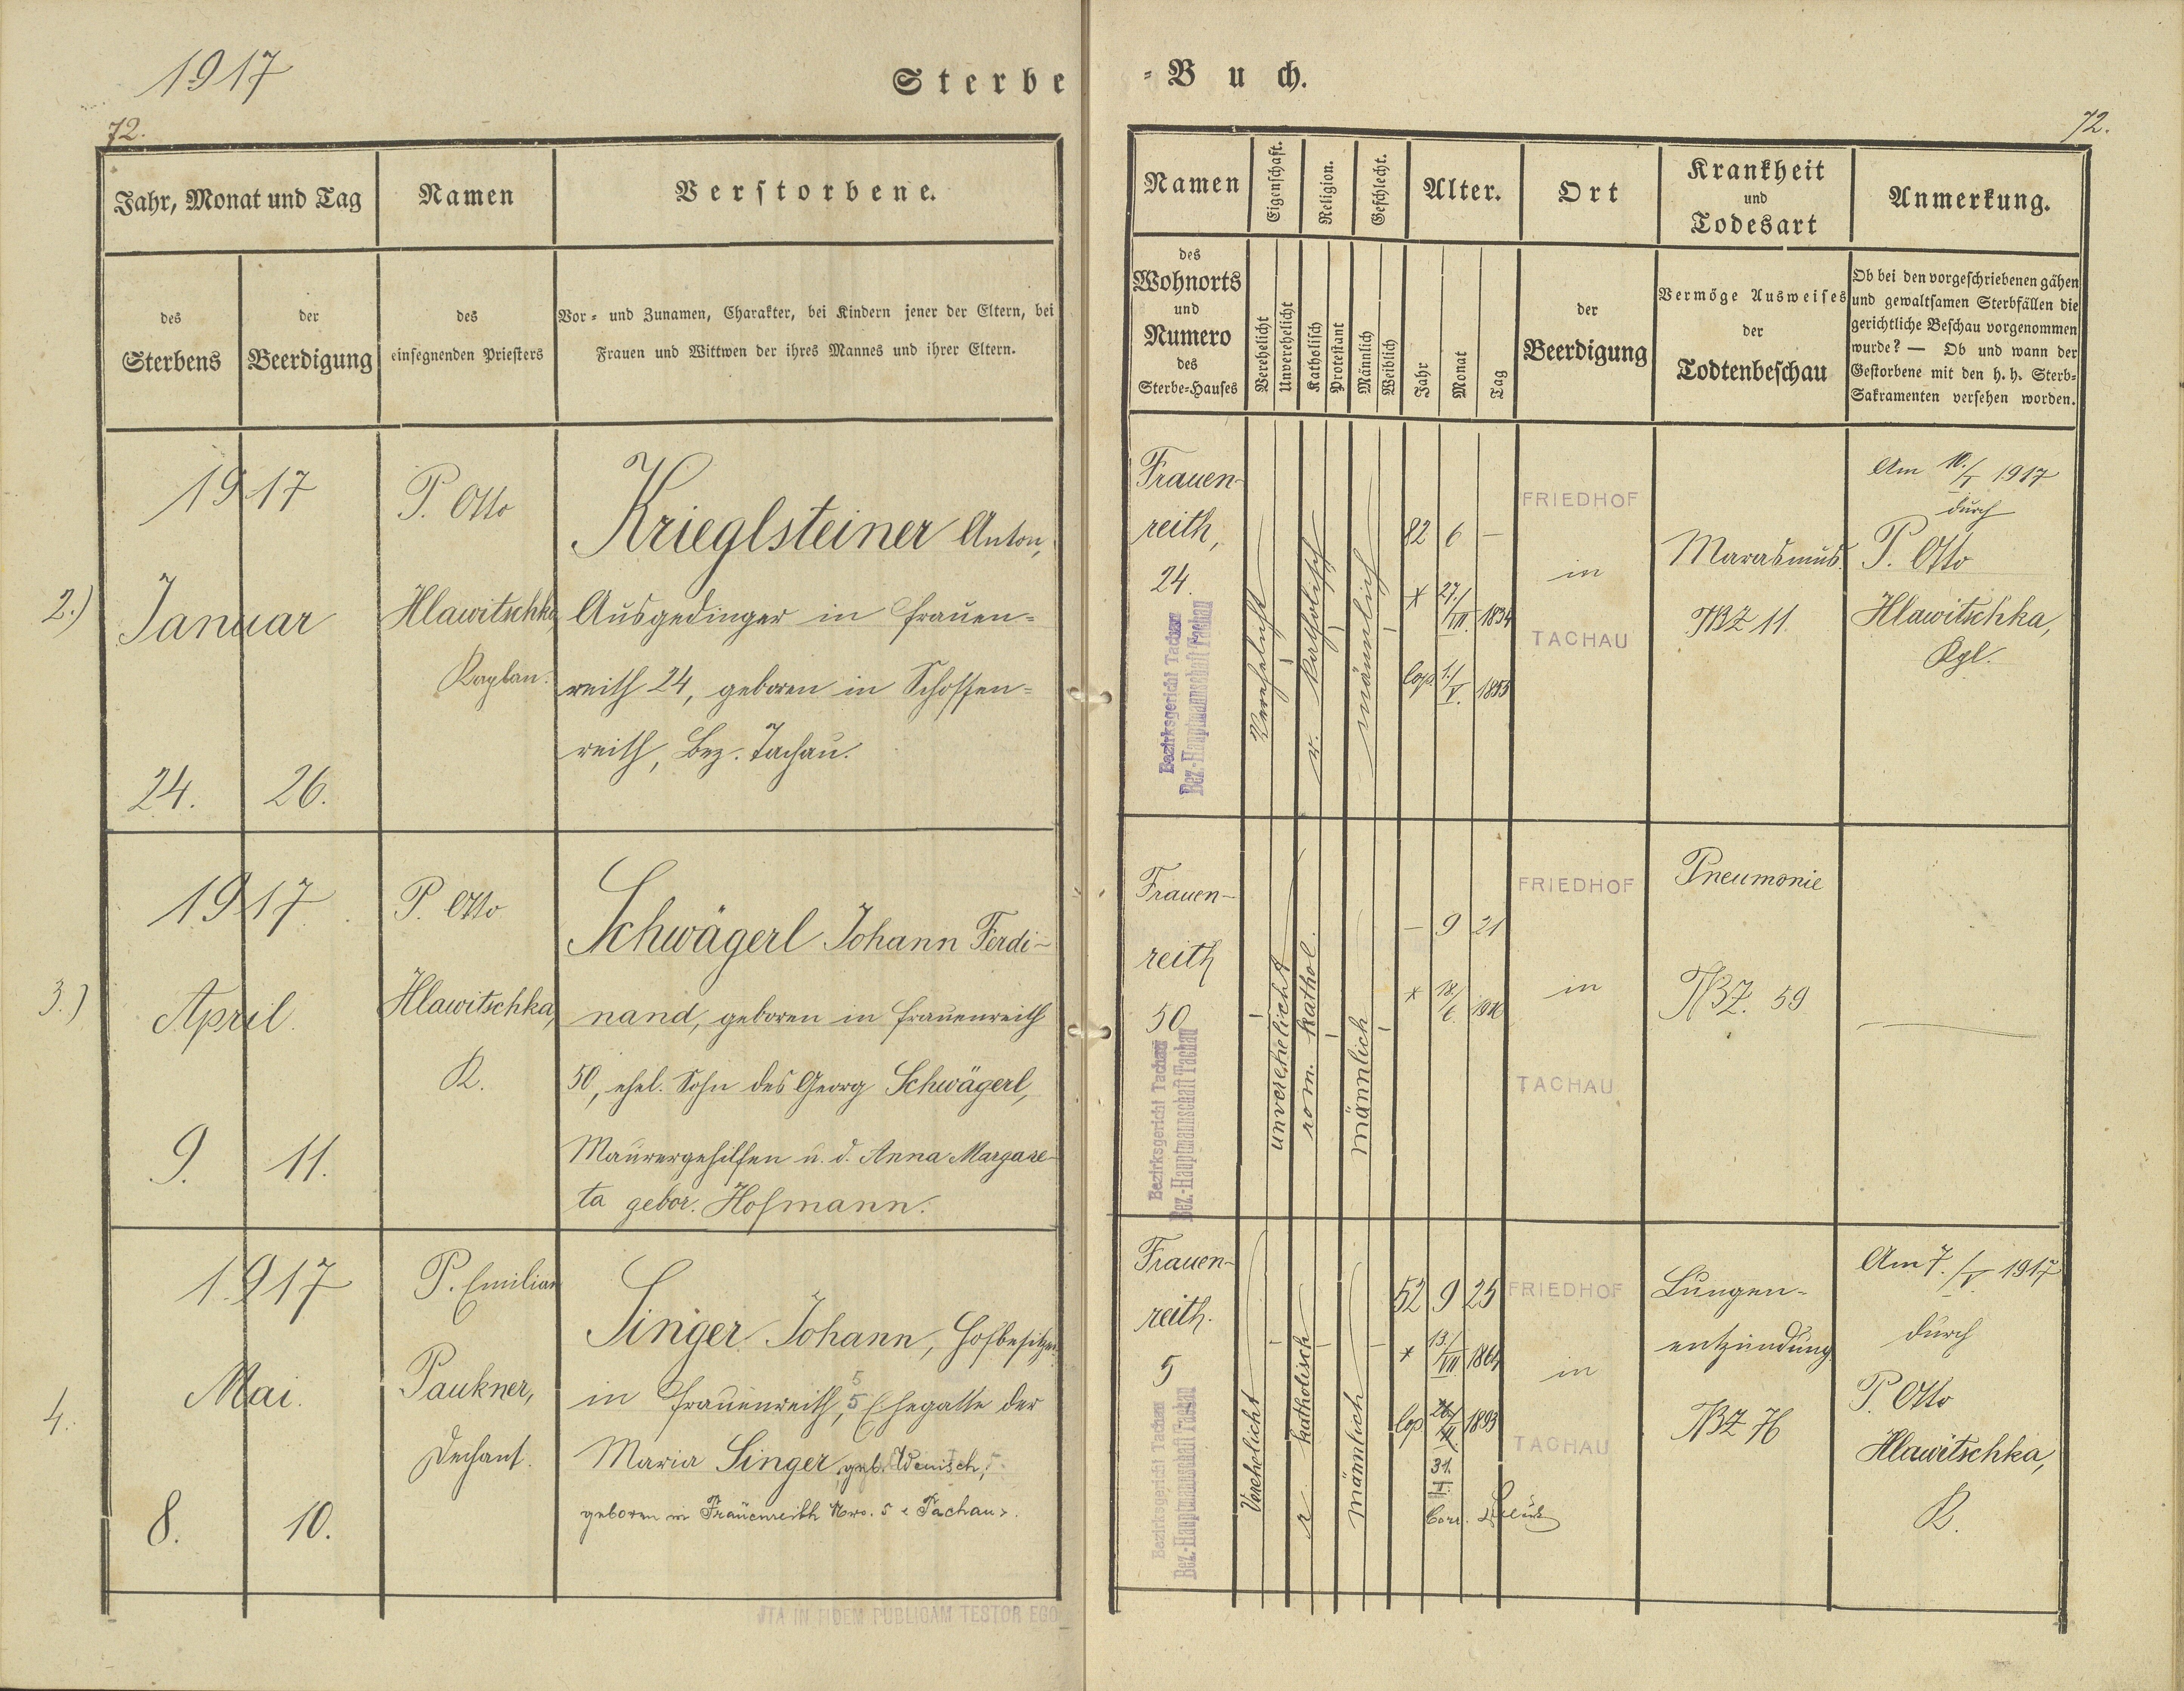 1917
Sterbe
72.
Jahr, Monat und Tag
Namen
Verstorbene.
des
Sterbens
der
Beerdigung
des
einsegnenden Priesters
Vor- und Zunamen, Charakter, bei Kindern jener der Eltern, bei
Frauen und Wittwen der ihres Mannes und ihrer Eltern.
2.)
1917
Januar
24.
26.
P. Otto
Hlawitschka,
Kaplan.
Krieglsteiner Anton,
Ausgedinger in Frauen=
reith 24, geboren in Schossen=
reith, Bez. Tachau.
3.)
1917
April
9.
11.
P. Otto
Hlawitschka,
K.
Schwägerl Johann Ferdi-
nand, geboren in Frauenreith
50, ehel. Sohn des Georg Schwägerl,
Maurergehilfen u. d. Anna Margare-
ta gebor. Hofmann.
4.
1917
Mai.
8.
10.
P. Emilian
Paukner,
Dechant.
Singer Johann, Hofbesitzer
in Frauenreith, 5 Ehegatte der
Maria Singer, geb. Wenisch,
geboren in Frauenreith Nro. 5 Tachau.
ITA IN FIDEM PUBLICAM TESTOR EGO
-Buch.
72.
Namen
Eigenschaft.
Religion.
Geschlecht.
Alter.
Ort
Krankheit
und
Todesart
Anmerkung.
des
Wohnorts
und
Numero
des
Sterbe-Hauses
Verehelicht
Unverehelicht
Katholisch
Protestant
Männlich
Weiblich
Jahr
Monat
Tag
der
Beerdigung
Vermöge Ausweises
der
Todtenbeschau
Ob bei den vorgeschriebenen gähen
und gewaltsamen Sterbfällen die
gerichtliche Beschau vorgenommen
wurde? — Ob und wann der
Gestorbene mit den h. h. Sterb-
Sakramenten versehen worden.
Frauen-
reith,
24
Bezirksgericht Tachau
Bez.-Hauptmannschaft Tachau
Verehelicht
r. katholisch
männlich
82 6 —
* 27./VII. 1834
cop. 1./V. 1855
FRIEDHOF
in
TACHAU
Marasmus.
TBZ 11.
Am 10./I 1917
durch
P. Otto
Hlawitschka,
Kpl.
Frauen-
reith
50
Bezirksgericht Tachau
Bez.-Hauptmannschaft Tachau
unverehelicht
rom. kathol.
männlich
— 9 21
* 18./6. 1916
FRIEDHOF
in
TACHAU
Pneumonie
TBZ. 59
Frauen-
reith.
5
Bezirksgericht Tachau
Bez.-Hauptmannschaft Tachau
Verehelicht
r. katholisch
männlich
52 9 25
* 13./VII. 1864
cop 1893
31.
I.
Corr.
FRIEDHOF
in
TACHAU
Lungen-
entzündung
TBZ 76
Am 7./V. 1917
durch
P. Otto
Hlawitschka,
K.